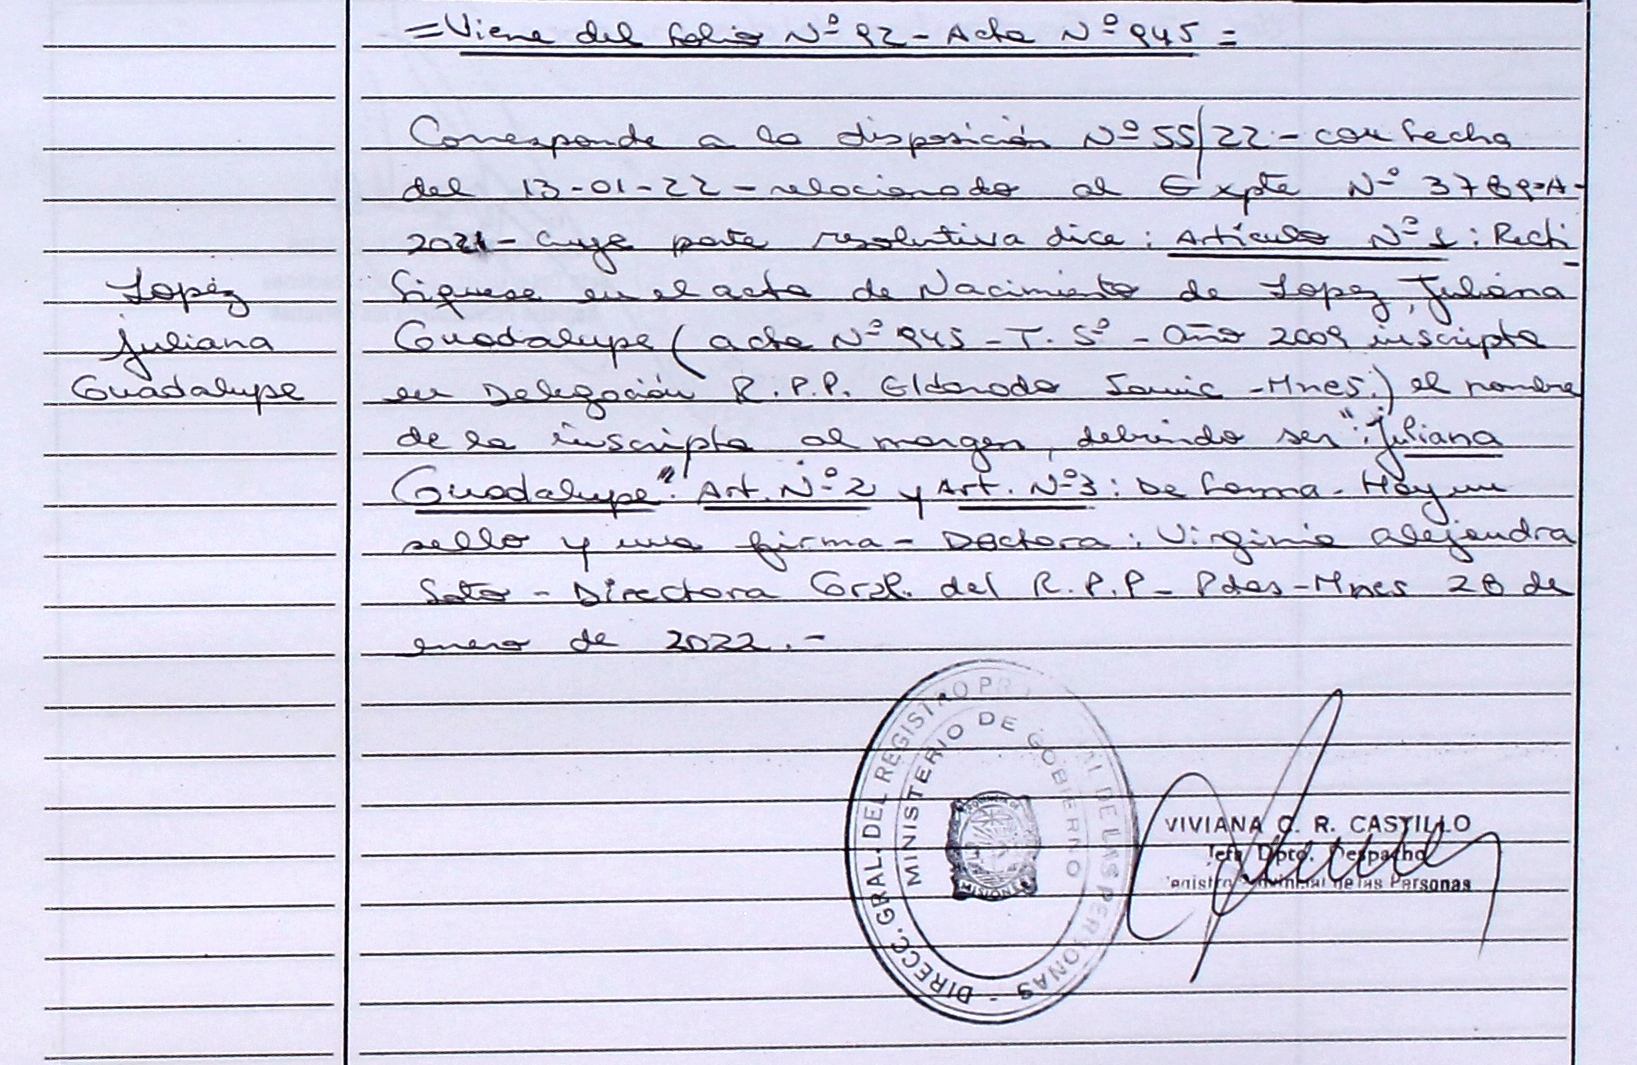 =Viene del folio Nº 92 - Acta Nº 945 =
Corresponde a la disposición Nº 55/22 - con fecha
del 13-01-22 - relacionado al Expte Nº 3789-A-
2021 - cuya parte resolutiva dice : Artículo Nº 1 : Recti-
fiquese en el acta de Nacimiento de Lopez, Juliana
Guadalupe ( acta Nº 945 - T. 5º - Año 2009 inscripta
en Delegación R.P.P. Eldorado Samic - Mnes.) el nombre
de la inscripta al margen, debiendo ser : "Juliana
Guadalupe". Art. Nº 2 y Art. Nº 3 : De forma - Hay un
sello y una firma - Doctora : Virginia alejandra
Soto - Directora Gral. del R.P.P - Pdas - Mnes 28 de
enero de 2022. -
Lopez
Juliana
Guadalupe
DIRECC. GRAL. DEL REGISTRO DE LAS PERSONAS -
MINISTERIO DE GOBIERNO
MISIONES
VIVIANA C. R. CASTILLO
Jefa Dpto. Despacho
Registro Provincial de las Personas